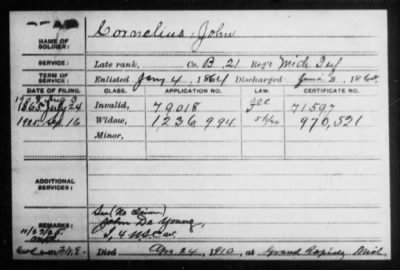 NAME OF SOLDIER: Cornelius, John
SERVICE: Late rank, Co. B 21 Reg't Mich Inf
TERM OF SERVICE: Enlisted Jany 4, 1864 Discharged June 8, 1865
DATE OF FILING. CLASS. APPLICATION NO. LAW. CERTIFICATE NO.
1865 July 24 Invalid, 79018 71597
Sep. 16 Widow, 1,236,994 970,521
Minor,
ADDITIONAL SERVICES:
REMARKS: (No Claim)
John De Young
Died Apr 24, 1910, at Grand Rapids Mich.